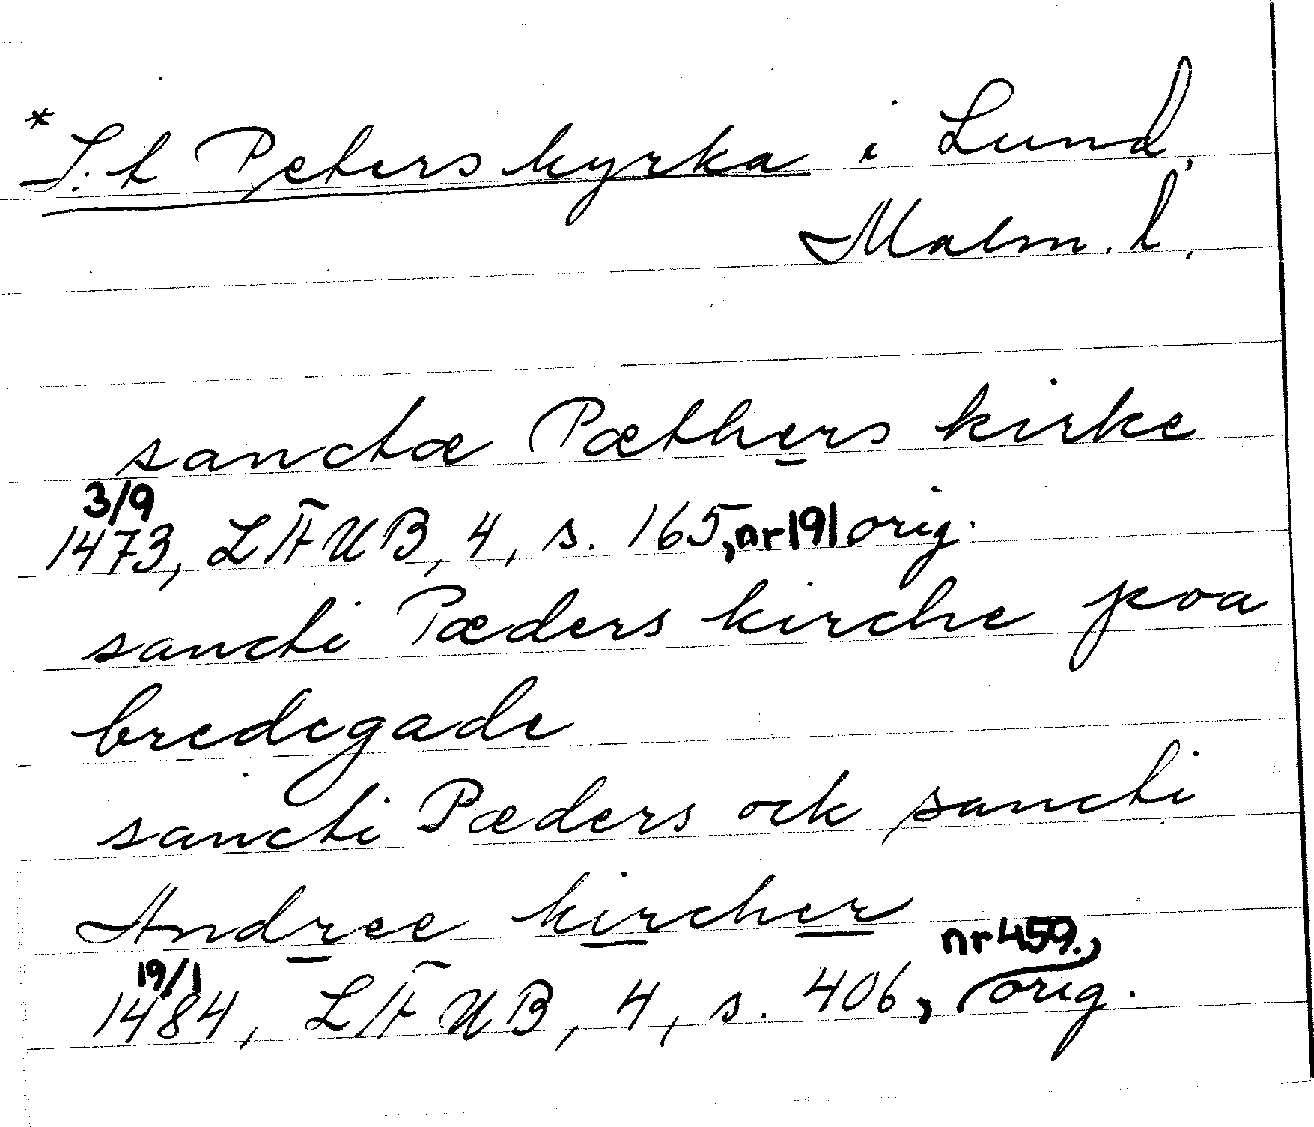 * S:t Peters kyrka i Lund,
Malm. l.
sanctæ Pæthers kirke
3/9
1473, LÄUB, 4, s. 165, nr 191 orig.
sancti Pæders kirche poa
bredegade
sancti Pæders ock sancti
Andree kircher
19/1 nr 459.,
1484, LÄUB, 4, s. 406, orig.